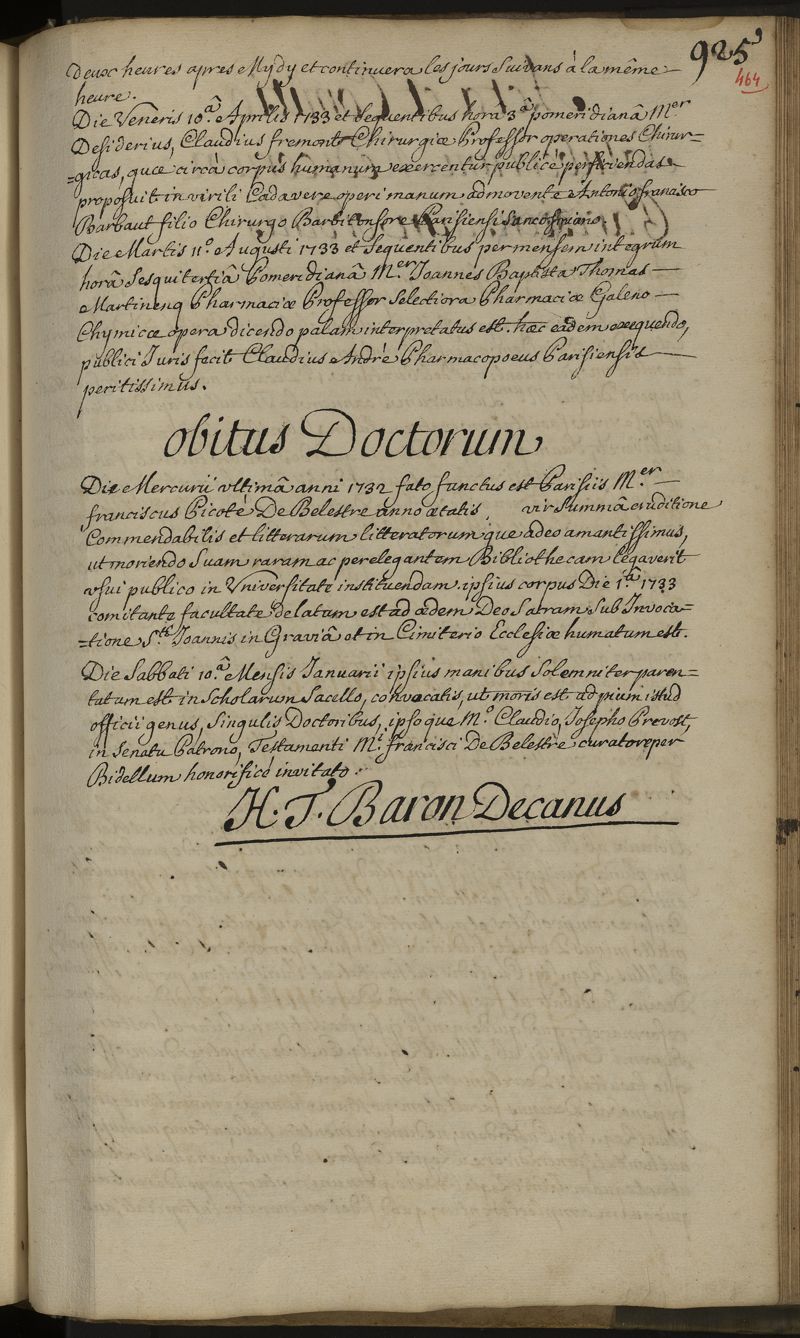 925
464
Deux heures apres Mydy et continuera les jours Suivans à la même —
heure.
Die Veneris 10.ª Aprilis 1733 et sequentibus hora 3.ª pomeridianâ M.er
Desiderius, Claudius fremont Chirurgiæ Professor operationes Chirur=
=gicas, quæ circà corpus humanum exercentur publicè perficiendas
proposuit in virili Cadavere operi manum admovente Antonio francisco
Barbaut filio Chirurgo Barbitonsore Parisiensi
Die Martis 11.º Augusti 1733 et Sequentibus per mensem integrum
horâ Sesquitertiâ Pomeridianâ M.er Joannes Baptista Thomas —
Martinenq Pharmaciæ Professor Selectiora Pharmaciæ Galeno —
Chymicæ opera dicendo palam interpretatus est. hæc eadem exequendo,
publici Juris facit Claudius André Pharmacopoeus Parisiensis —
peritissimus.
obitus Doctorum
Die Mercurii ultimâ anni 1732 fato functus est Parisiis M.er —
franciscus Picoté De Belestre anno ætatis , vir Summâ eruditione
Commendabilis et litterarum litteratorum que adeo amantissimus,
ut moriendo Suam raram ac perelegantem Bibliothecam legaverit
usui publico in Universitate instituendam. ipsius corpus Die 1.ª 1733
comitante facultate delatum est ad ædem Deo Sacram Sub Invoca=
=tione S.ti Joannis in Graviâ et in Cimiterio Ecclesiæ humatum est.
Die Sabbati 10.ª Mensis Januarii ipsius manibus Solemniter paren=
tatum est in Scholarum Sacello, convocatis, ut moris est ad pium istud
officii genus, Singulis Doctoribus, ipso que M.º Claudio, Josepho Prevost,
in Senatu Patrono, Testamenti M.i francisci De Belestre curatore per
Bidellum honorificè invitato.
H. T. Baron Decanus